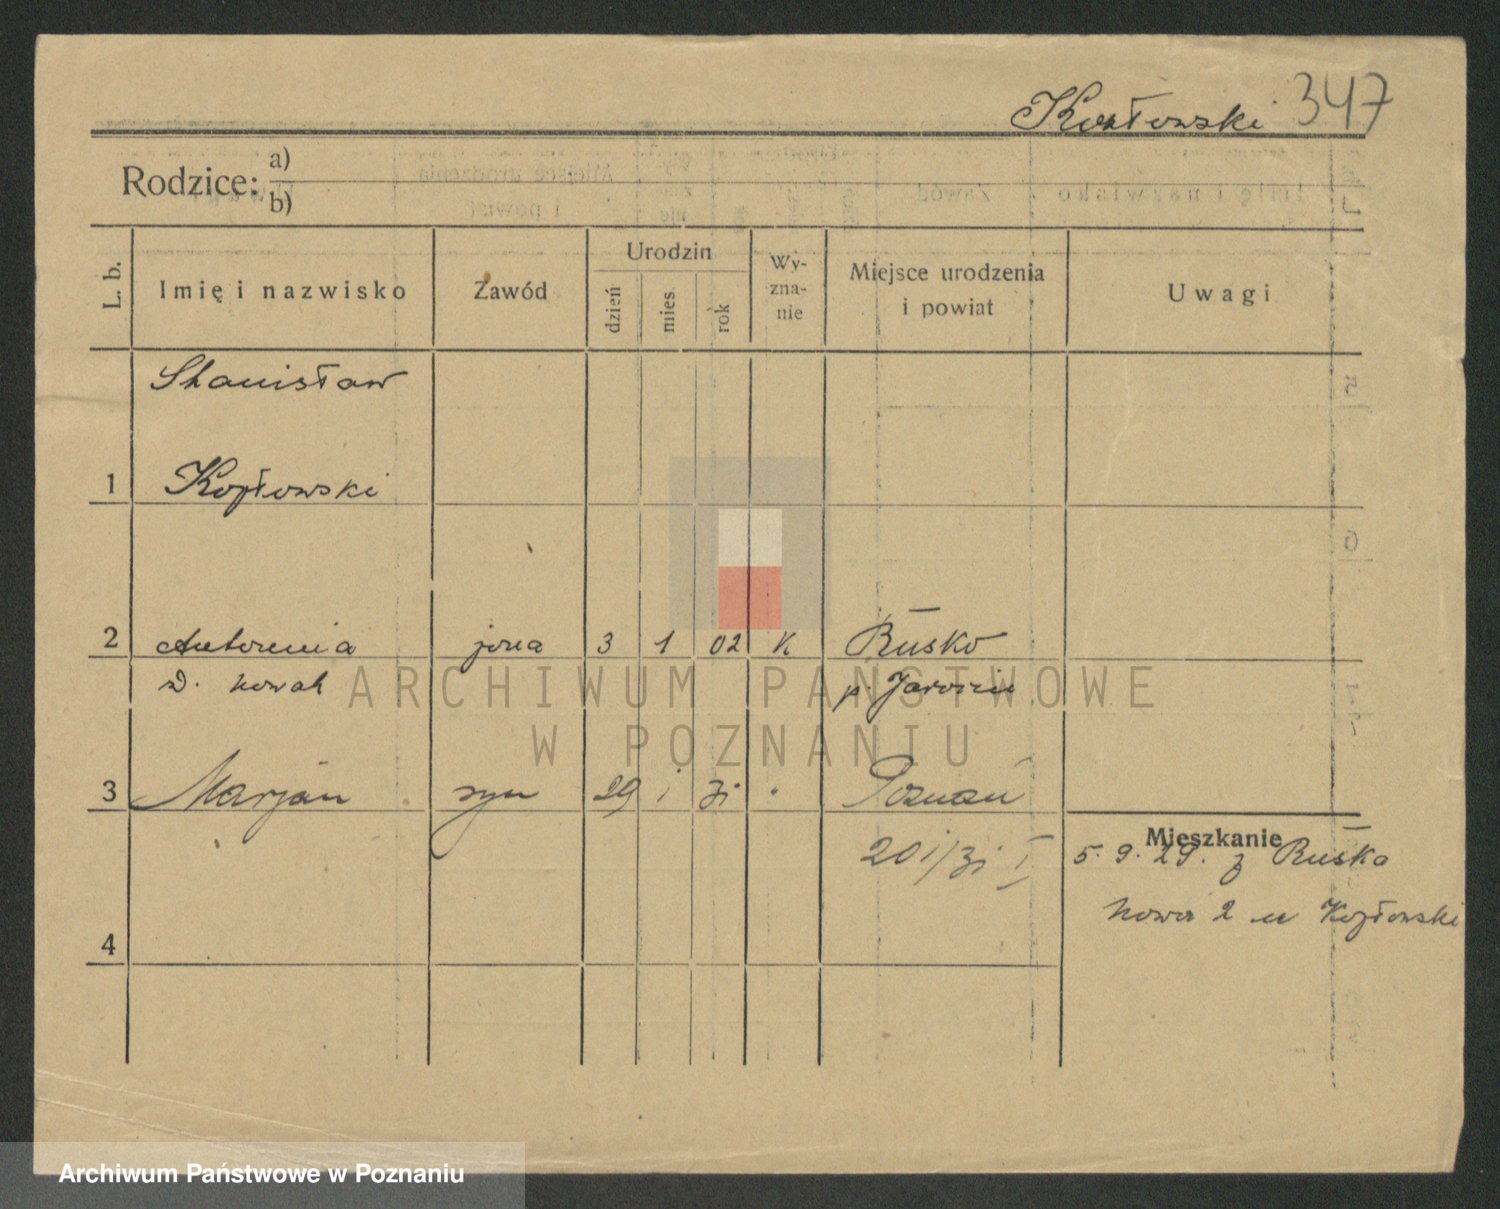 Kozłowski 347
Rodzice: a)
b)
L. b. Imię i nazwisko Zawód Urodzin dzień mies. rok Wyznanie Miejsce urodzenia i powiat Uwagi
Stanisław
1 Kozłowski
2 Antonina żona 3 1 02 K Rusko
D. Nowak p Jarocin
ARCHIWUM PAŃSTWOWE
W POZNANIU
3 Marjan syn 29 1 31 " Poznań
Mieszkanie
20 1/31 5. 9. 29. z Ruska
Nowa 2 u Kozłowski
4
Archiwum Państwowe w Poznaniu